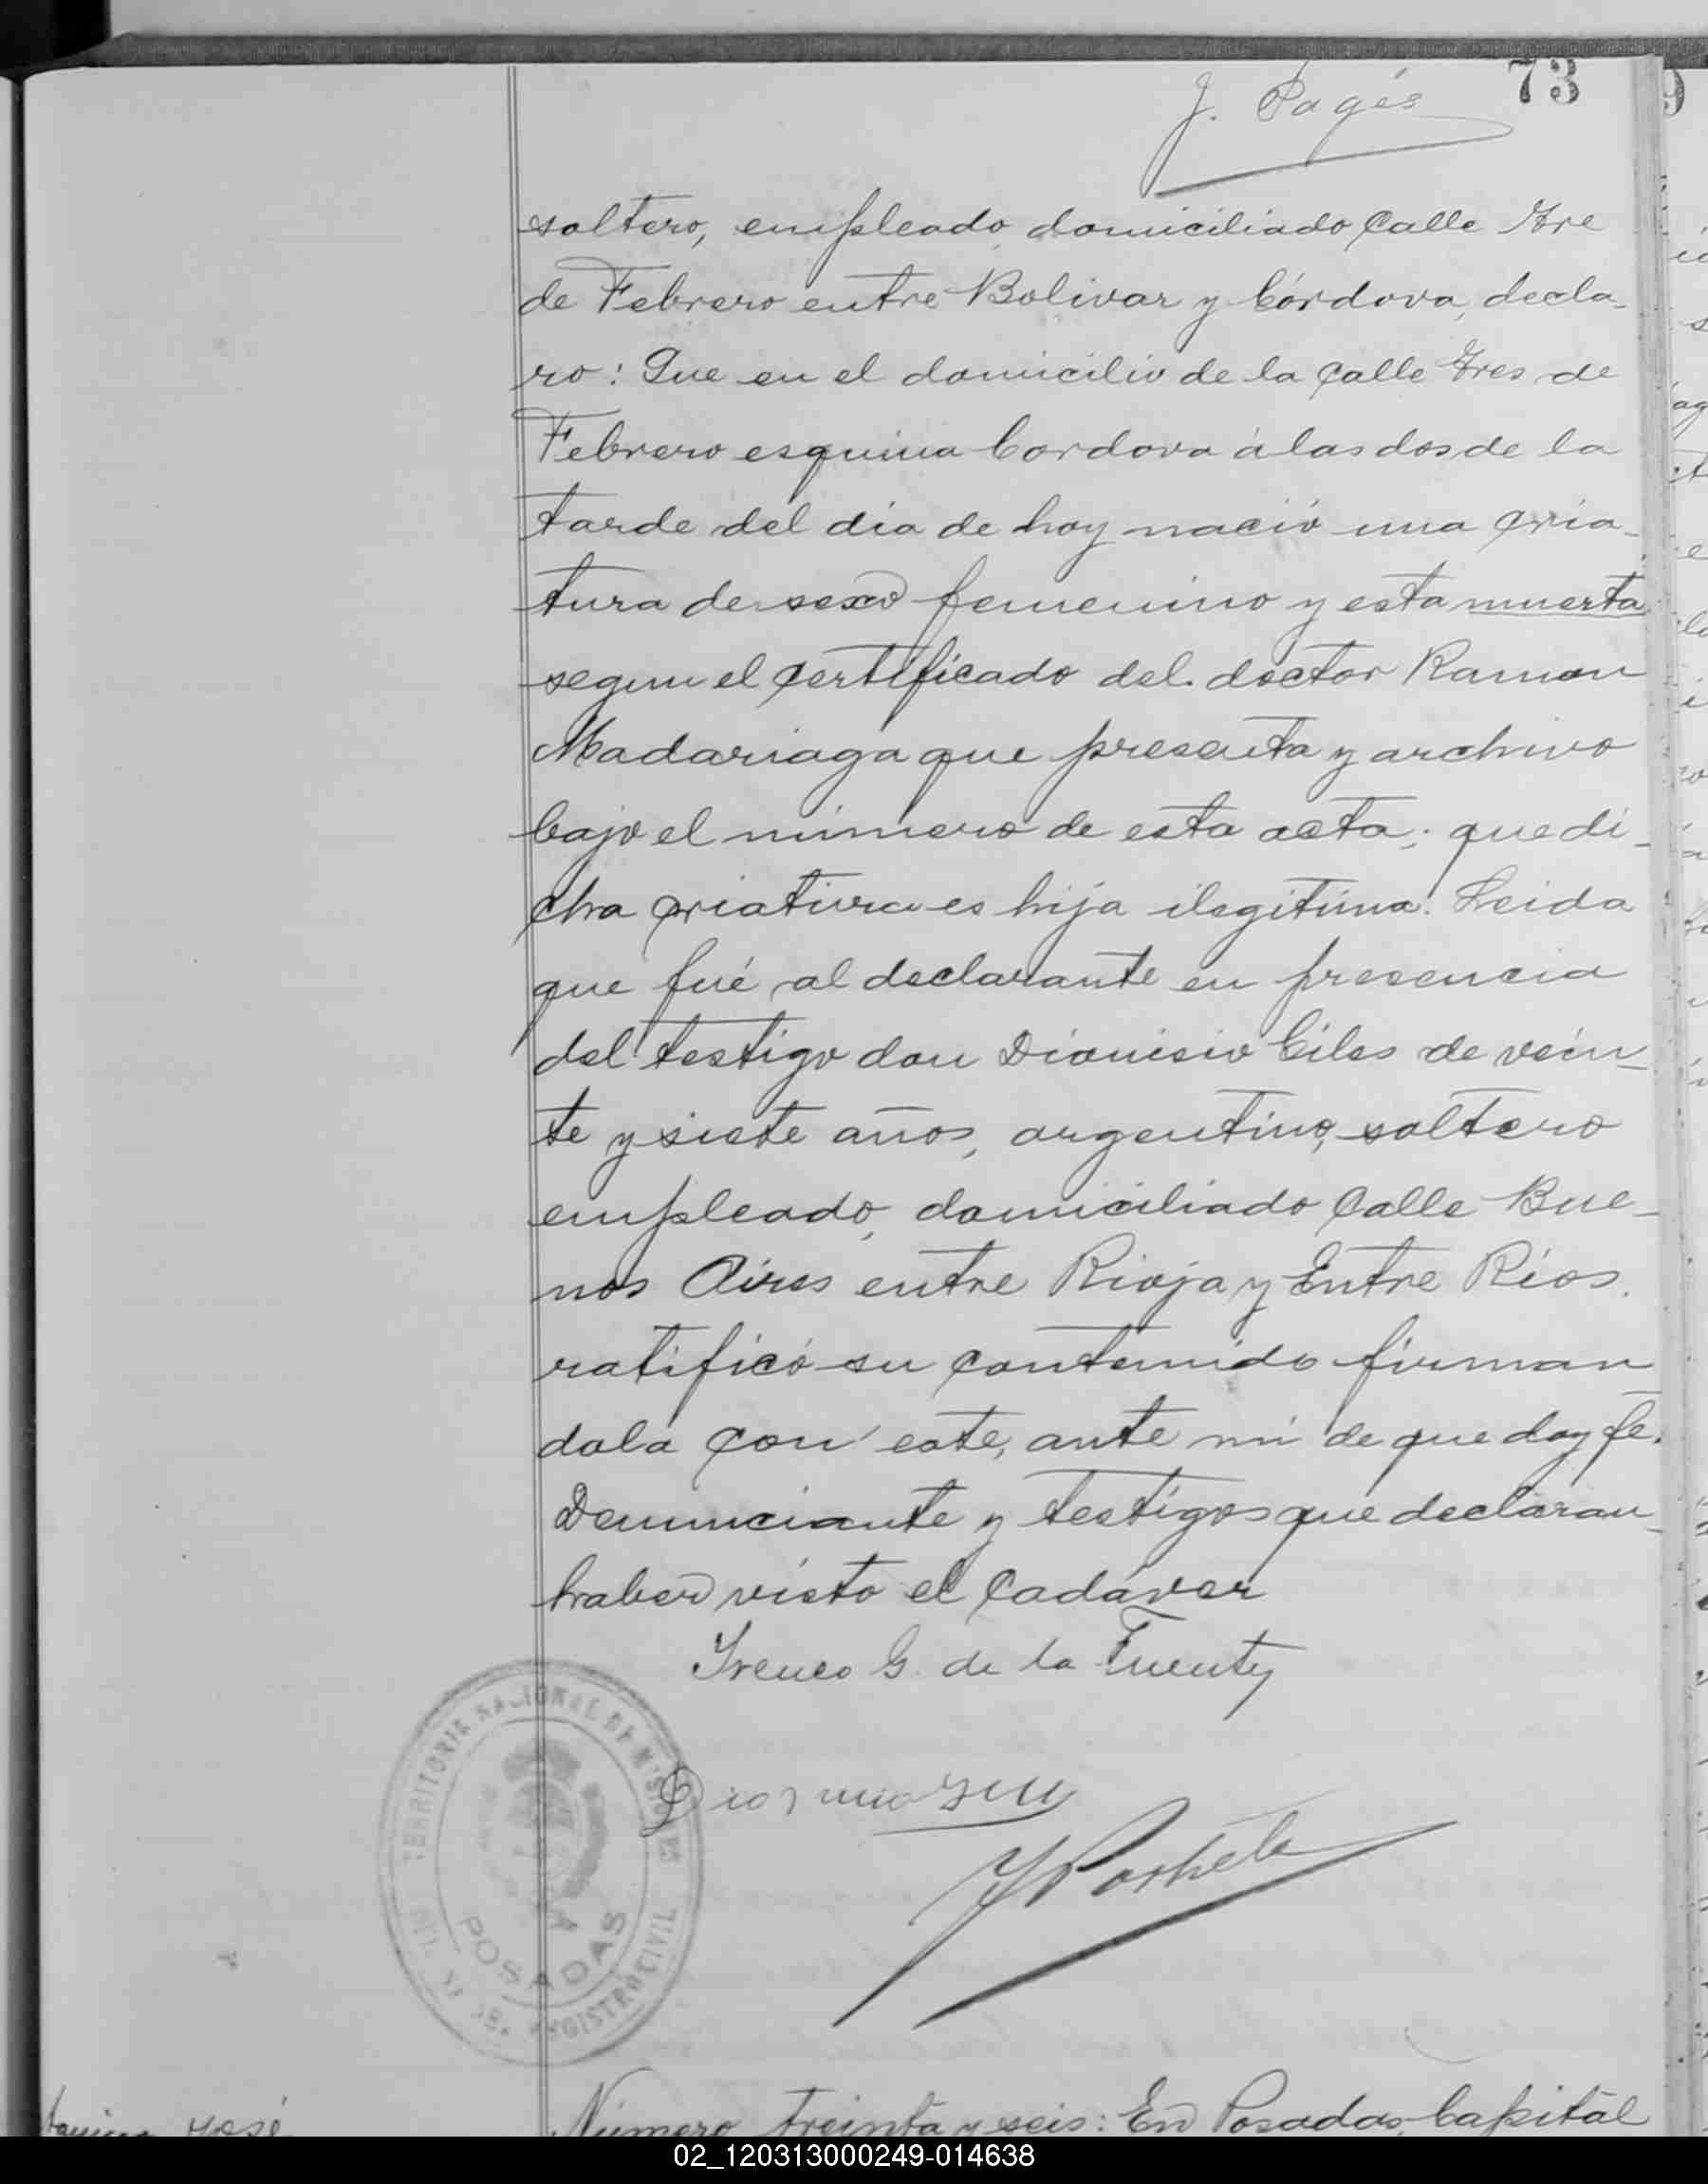 J. Pagés
73
soltero, empleado, domiciliado calle Tre
de Febrero entre Bolivar y Córdova, decla-
ro: Que en el domicilio de la calle Tres de
Febrero esquina Cordova á las dos de la
tarde del dia de hoy nació una cria-
tura de sexo femenino y esta muerta
segun el certificado del doctor Ramon
Madariaga que presenta y archivo
bajo el número de esta acta; que di-
cha criatura es hija ilegitima. Leida
que fué al declarante en presencia
del testigo don Dionisio Giles de vein-
te y siete años, argentino, soltero
empleado, domiciliado calle Bue-
nos Aires entre Rioja y Entre Rios.
ratificó su contenido firman
dola con este, ante mi de que doy fe.
Denunciante y testigos que declaran
haber visto el cadáver
Ireneo G. de la Fuente
TERRITORIO NACIONAL DE MISIONES
POSADAS
REGISTRO CIVIL
José
Número treinta y seis: En Posadas, Capital
02_120313000249-014638